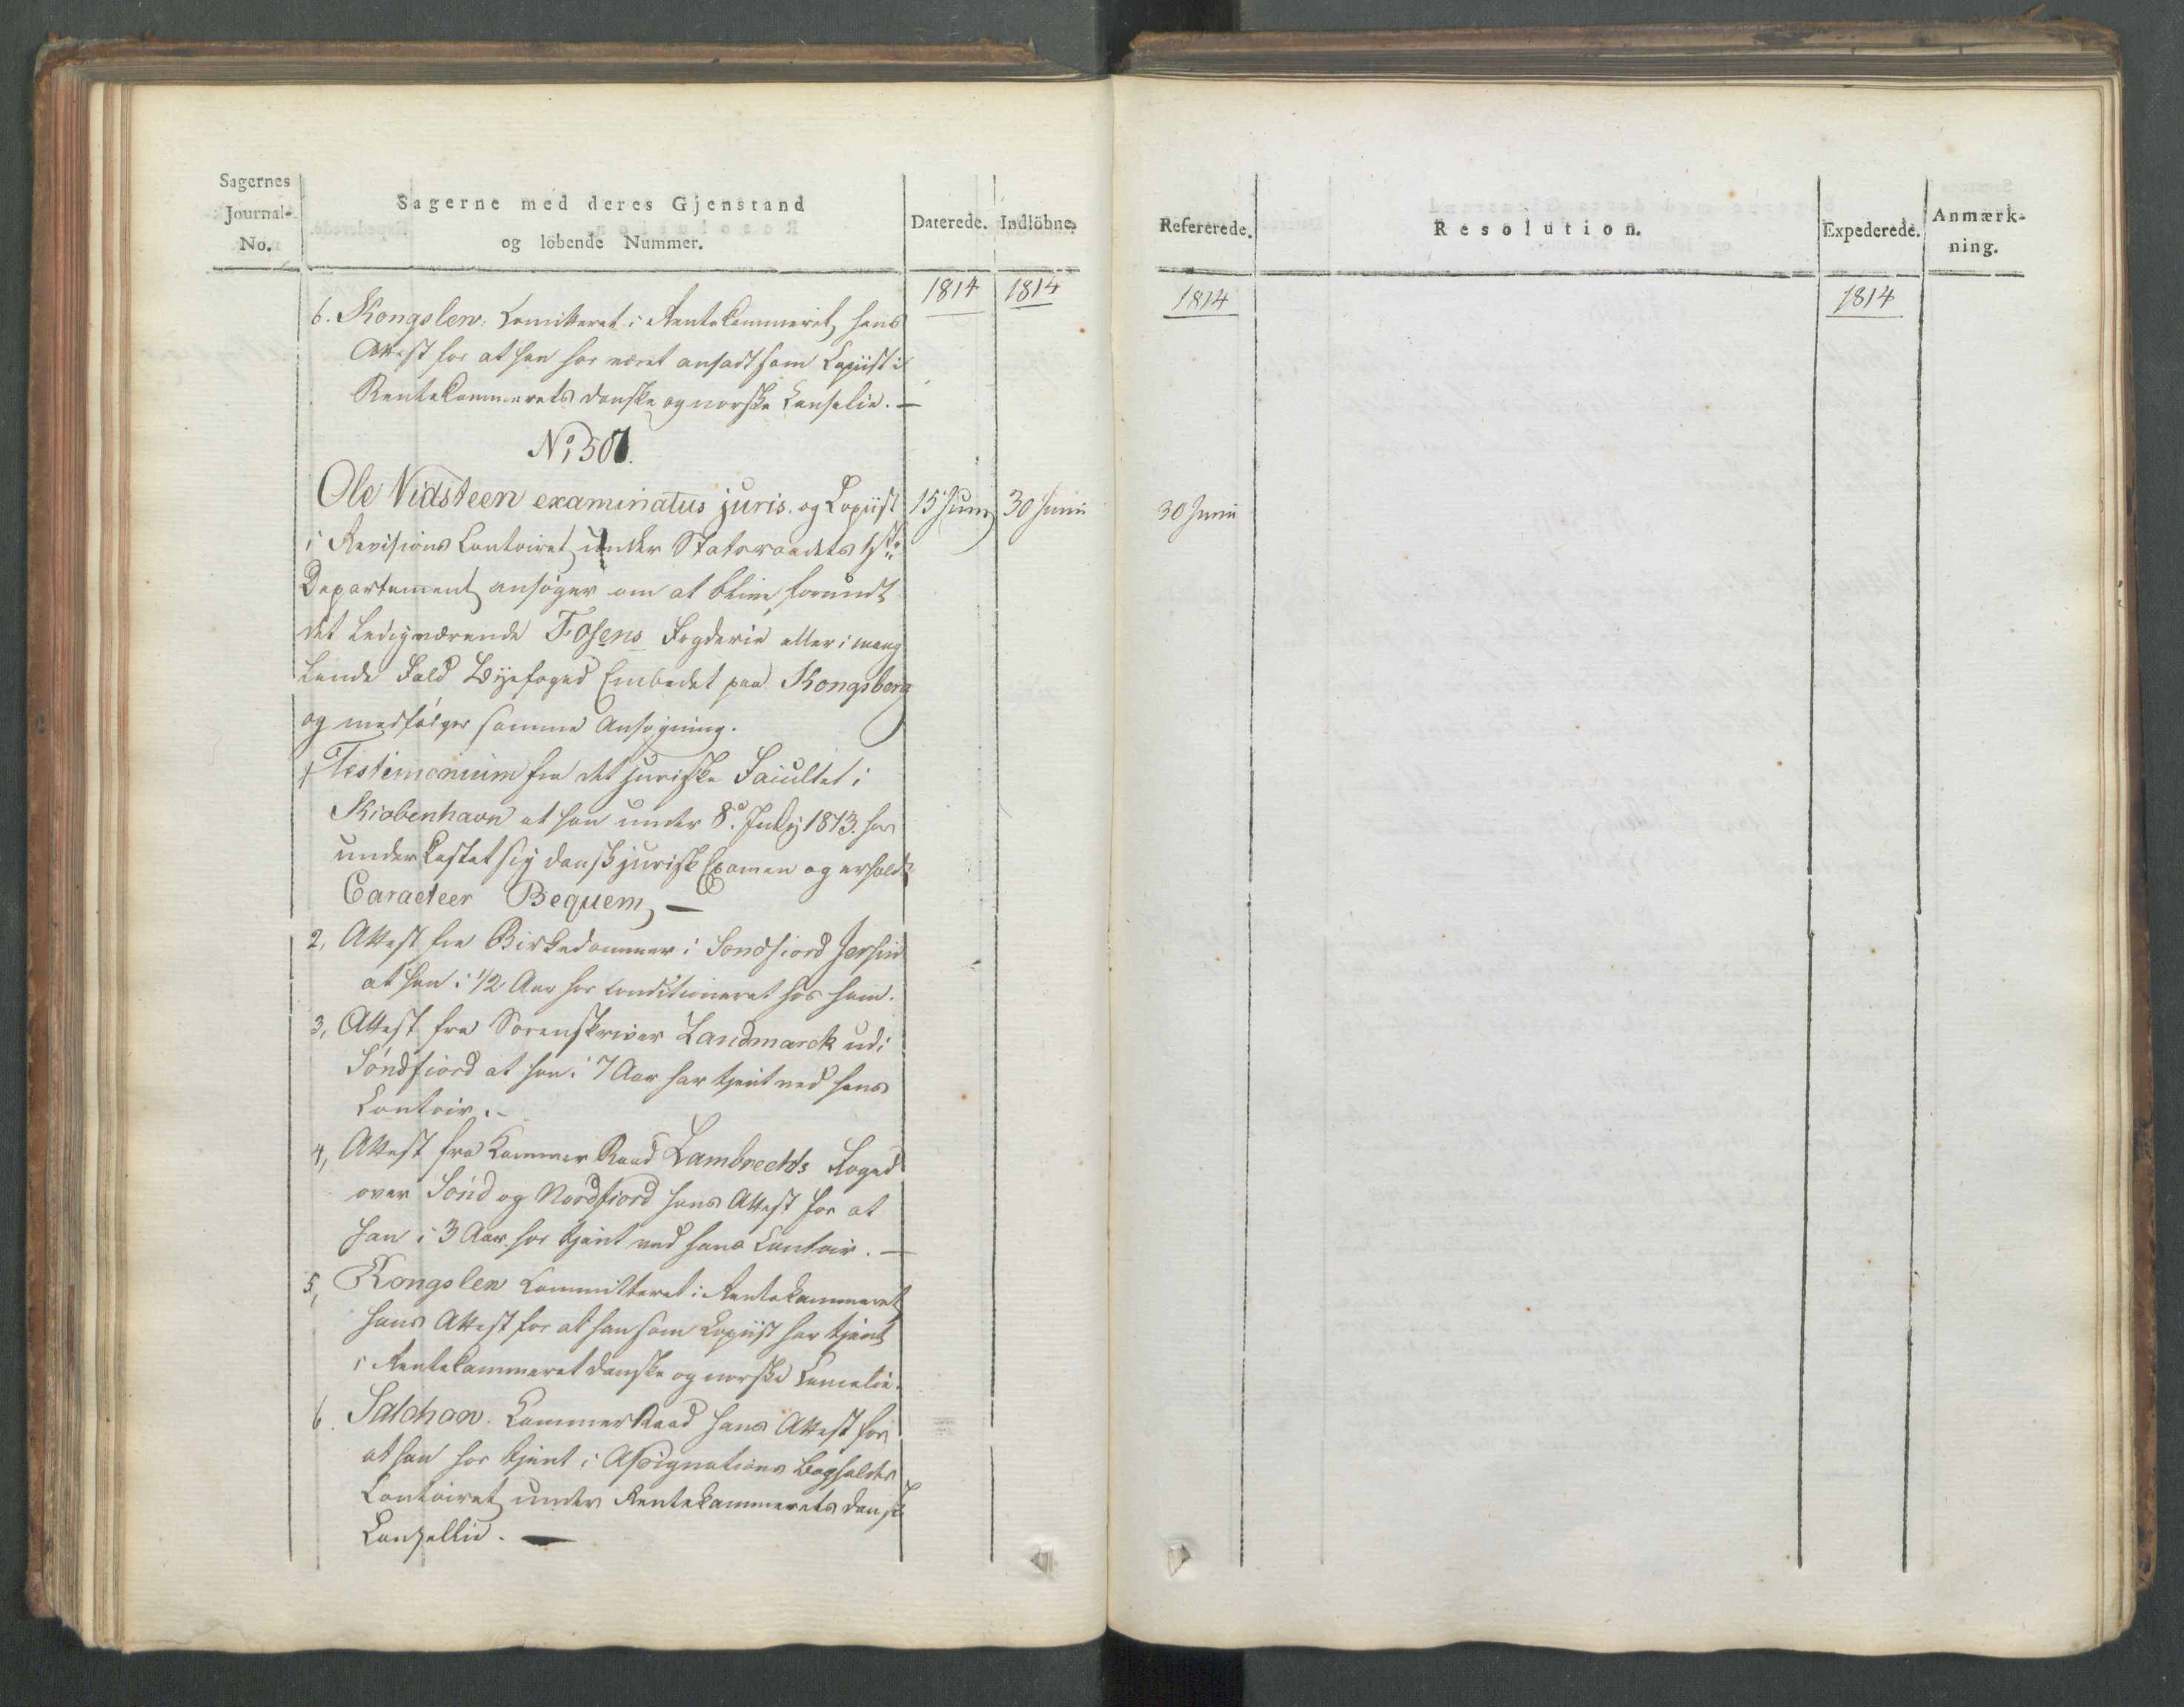 Sagernes
Journal-
No.
Sagerne med deres Gjenstand
og löbende Nummer.
Daterede.
Indlöbne.
Refererede.
Resolution.
Expederede.
Anmærk-
ning.
1814
1814
1814
1814
6. Kongslew: Comitteret i Rentekammeret, hans
Attest for at han har været ansadt som Copiist i
Rentekammerets danske og norske Canselie. —
No. 501.
Ole Vidsteen examinatus juris. og Copiist
15 Juny
30 Junii
30 Junii
i Revisions Contoiret under Statsraadets
Departement ansøger om at blive forundt
det ledigværende Fosens Fogderie eller i mang
lende Fald Byefoged Embedet paa Kongsberg
og medfølger samme Ansøgning.
1 Testimonium fra det juriske Facultet i
Kiøbenhavn at han under 8de July 1813. har
underkastet sig dansk jurisk Examen og erholdt
Caracteer Beqvem, —
2, Attest fra Birkedommer i Søndfiord Jersin
at han i 1/2 Aar har conditioneret hos ham.
3, Attest fra Sorenskriver Landmarck udi
Søndfiord at han i 7 Aar har tjent ved hans
Contoir. -
4, Attest fra Kammer Raad Lambrechts Foged
over Sønd og Nordfiord hans Attest for at
han i 3 Aar har tjent ved hans Contoir. —
5, Kongslew Committeret i Rentekammeret
hans Attest for at han som Copiist har tjent
i Rentekammeret danske og norske Cancelie.
6. Saldhan. Kammer Raad hans Attest for
at han har tjent i Assignations Bogholder
Contoiret under Rentekammerets danske
Canzellie. —